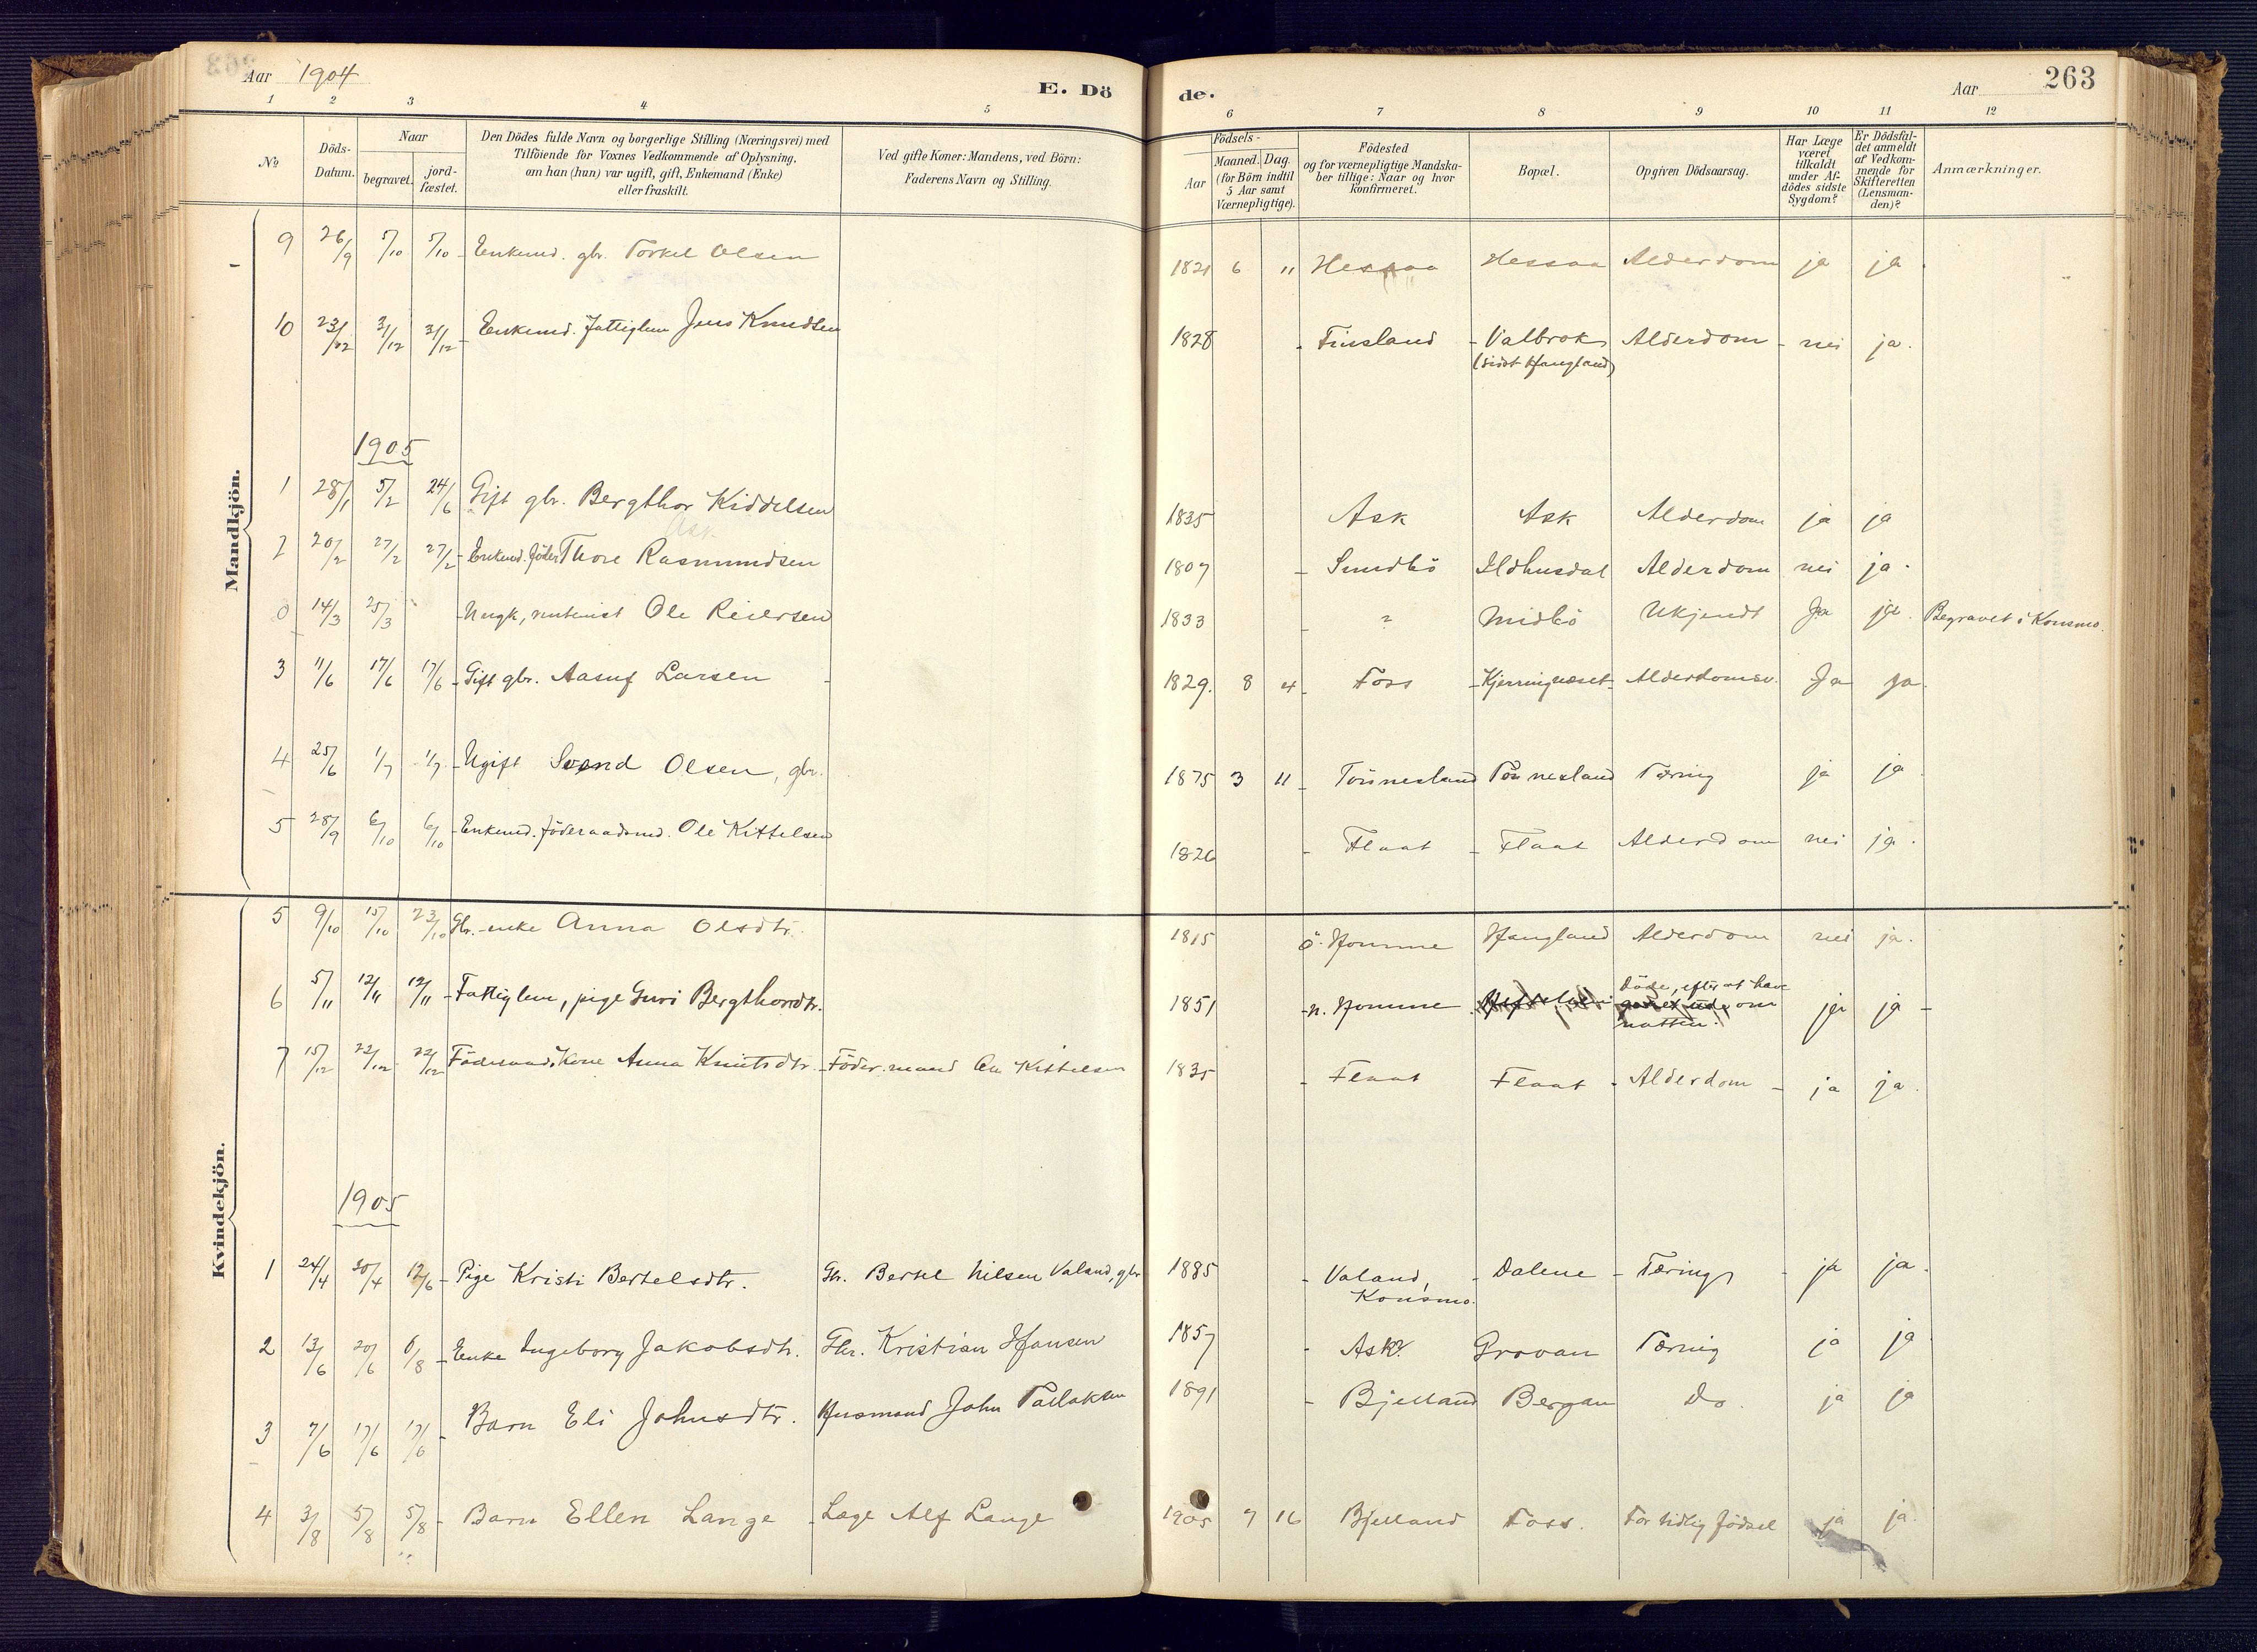 Aar 1904
E. Dö
de.
Aar
263
1 2 3 4 5 6 7 8 9 10 11 12
№
Döds-
Datum.
Naar
begravet.
jord-
fæstet.
Den Dödes fulde Navn og borgerlige Stilling (Næringsvei) med
Tilföiende for Voxnes Vedkommende af Oplysning,
om han (hun) var ugift, gift, Enkemand (Enke)
eller fraskilt.
Ved gifte Koner: Mandens, ved Börn:
Faderens Navn og Stilling.
Födsels-
Aar
Maaned. Dag.
(for Börn indtil
5 Aar samt
Værnepligtige).
Födested
og for værnepligtige Mandska-
ber tillige: Naar og hvor
konfirmeret.
Bopæl.
Opgiven Dödsaarsag.
Har Læge
været
tilkaldt
under Af-
dödes sidste
Sygdom?
Er Dödsfal-
det anmeldt
af Vedkom-
mende for
Skifteretten
(Lensman-
den)?
Anmærkninger.
Mandkjön.
9 26/9 5/10 5/10 Enkemd. gbr. Torkel Olsen 1821 6 11 Hessaa Hessaa Alderdom ja ja
10 23/12 31/12 31/12 Enkemd. Fattiglem Jens Knudsen 1828 Finsland Valbrok Alderdom nei ja.
(sidst Haugland)
1905
1 28/1 5/2 24/6 Gift gbr. Bergthor Kiddelsen 1835 Ask Ask Alderdom ja ja
Ask
2 20/2 27/2 27/2 Enkemd. föder Thore Rasmundsen 1807 Sundbö Ildhusdal Alderdom nei ja.
0 14/3 25/3 Ungk, Ole Reiersen 1833 ? Midbö Ukjendt Ja ja. Begravet i Konsmo.
3 11/6 17/6 17/6 Gift gbr. Aasuf Larsen 1829. 8 4 Foss Kjerringneset Alderdomsv. Ja ja.
4 25/6 1/7 1/7 Ugift Svend Olsen, gbr. 1875 3 11 Tönnesland Tönnesland Tæring ja ja
5 28/9 6/10 6/10 Enkemd. föderaadsmd. Ole Kittelsen 1826 Flaat Flaat Alderdom nei ja.
Kvindekjön.
5 9/10 15/10 23/10 Gbr.-enke Anna Olsdtr. 1815 ö. Homme Haugland Alderdom nei ja.
6 5/11 12/11 12/11 Fattiglem, pige Guri Bergthorsdtr. 1851 n. Homme Döde, efter at have
gaaet ude om
natten. ja ja
7 15/12 22/12 22/12 Föderaads Kone Anna Knutsdtr. Föder.mand Ole Kittelsen 1835 Flaat Flaat Alderdom ja ja.
1905
1 24/4 30/4 12/6 Pige Kristi Bertelsdtr. Gbr. Bertel Nilsen Valand, gbr 1885 Valand, Dalene Tæring ja ja.
Konsmo.
2 13/6 20/6 6/8 Enke Ingeborg Jakobsdtr. Gbr. Kristian Hansen 1857 Ask Grovan Tæring ja ja
3 7/6 17/6 17/6 Barn Eli Johnsdtr. Husmand John Tallaksen 1891 Bjelland Bergan Do. ja ja
4 3/8 5/8 5/8 Barn Ellen Lange Læge Alf Lange 1905 7 16 Bjelland Foss. For tidlig födsel ja ja